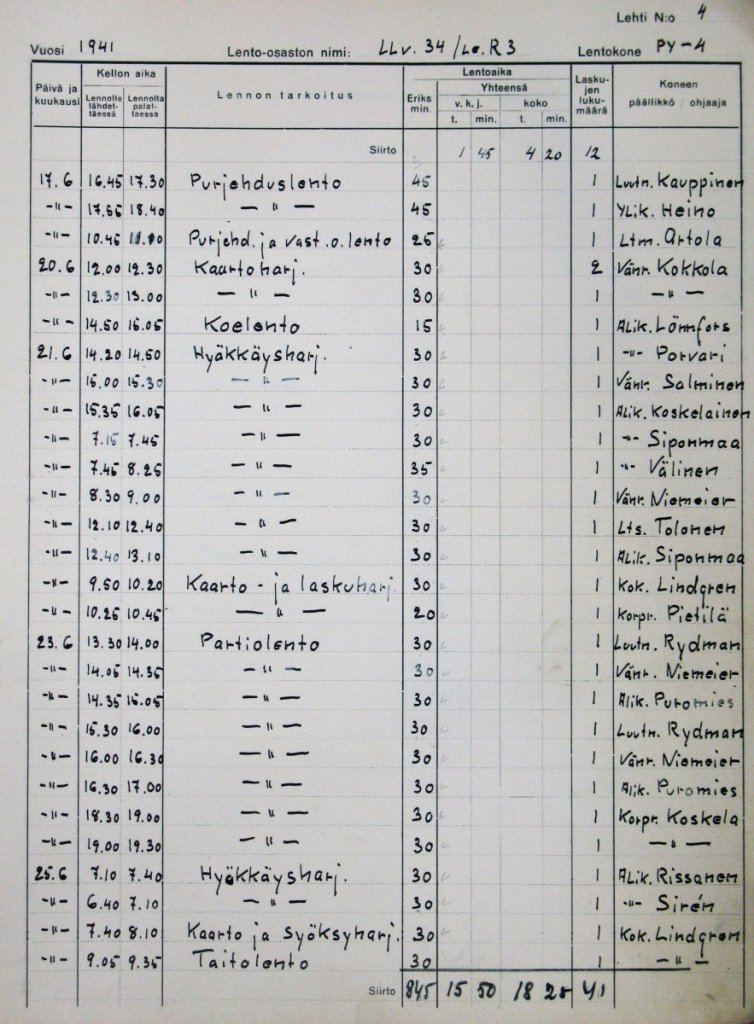 Lehti N:o 4
Vuosi 1941 Lento-osaston nimi: LLv. 34/Le.R3 Lentokone PY-4
Päivä ja kuukausi Kellon aika Lennolle lähdettäessä Lennolta palattaessa Lennon tarkoitus Lentoaika Eriks min. Yhteensä v. k. j. t. min. koko t. min. Laskujen lukumäärä Koneen päällikkö / ohjaaja
Siirto 1 45 4 20 12
17.6 16.45 17.30 Purjehduslento 45 1 Luutn. Kauppinen
-"- 17.55 18.40 — " — 45 1 Ylik. Heino
-"- 10.45 Purjehd. ja vast.o.lento 25 1 Ltm. Artola
20.6 12.00 12.30 Kaartoharj. 30 2 Vänr. Kokkola
-"- 12.30 13.00 — " — 30 1 — " —
-"- 14.50 15.05 Koelento 15 1 Alik. Lönnfors
21.6 14.20 14.50 Hyäkkäysharj. 30 1 -"- Porvari
-"- 15.00 15.30 — " — 30 1 Vänr. Salminen
-"- 15.35 16.05 — " — 30 1 Alik. Koskelainen
-"- 7.15 7.45 — " — 30 1 -"- Siponmaa
-"- 7.45 8.25 — " — 35 1 -"- Välinen
-"- 8.30 9.00 — " — 30 1 Vänr. Niemeier
-"- 12.10 12.40 — " — 30 1 Lts. Tolonen
-"- 12.40 13.10 — " — 30 1 Alik. Siponmaa
-"- 9.50 10.20 Kaarto - ja laskuharj. 30 1 Kok. Lindgren
-"- 10.25 10.45 — " — 20 1 Korpr. Pietilä
23.6 13.30 14.00 Partiolento 30 1 Luutn. Rydman
-"- 14.05 14.35 — " — 30 1 Vänr. Niemeier
-"- 14.35 15.05 — " — 30 1 Alik. Puromies
-"- 15.30 16.00 — " — 30 1 Luutn. Rydman
-"- 16.00 16.30 — " — 30 1 Vänr. Niemeier
-"- 16.30 17.00 — " — 30 1 Alik. Puromies
-"- 18.30 19.00 — " — 30 1 Korpr. Koskela
-"- 19.00 19.30 — " — 30 1 — " —
25.6 7.10 7.40 Hyäkkäysharj. 30 1 Alik. Rissanen
-"- 6.40 7.10 — " — 30 1 -"- Sirén
-"- 7.40 8.10 Kaarto ja syöksyharj. 30 1 Kok. Lindgren
-"- 9.05 9.35 Taitolento 30 1 — " —
Siirto 845 15 50 18 25 41